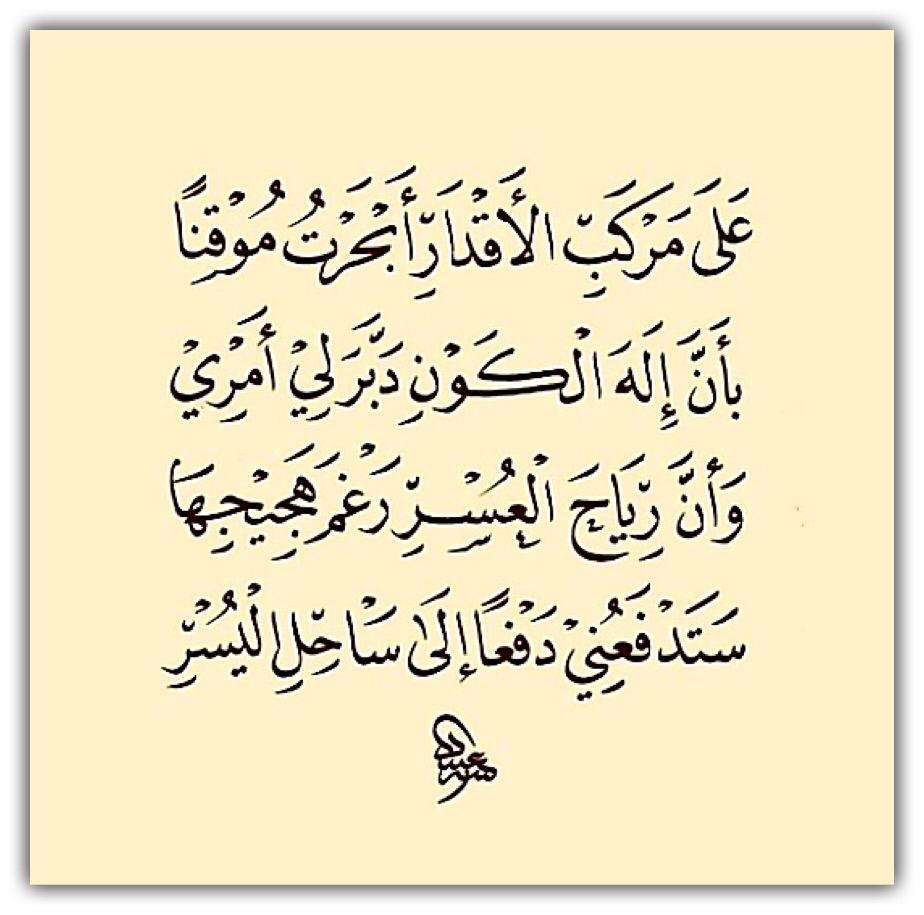 عَلَى مَرْكَبِ الأَقْدَارِ أَبْحَرْتُ مُوْقِنًا
بِأَنَّ إِلَهَ الْكَوْنِ دَبَّرَ لِيْ أَمْرِيْ
وَأَنَّ رِيَاحَ الْعُسْرِ رَغْمَ هَجِيْجِهَا
سَتَدْفَعُنِيْ دَفْعًا إِلَى سَاحِلِ الْيُسْرِ